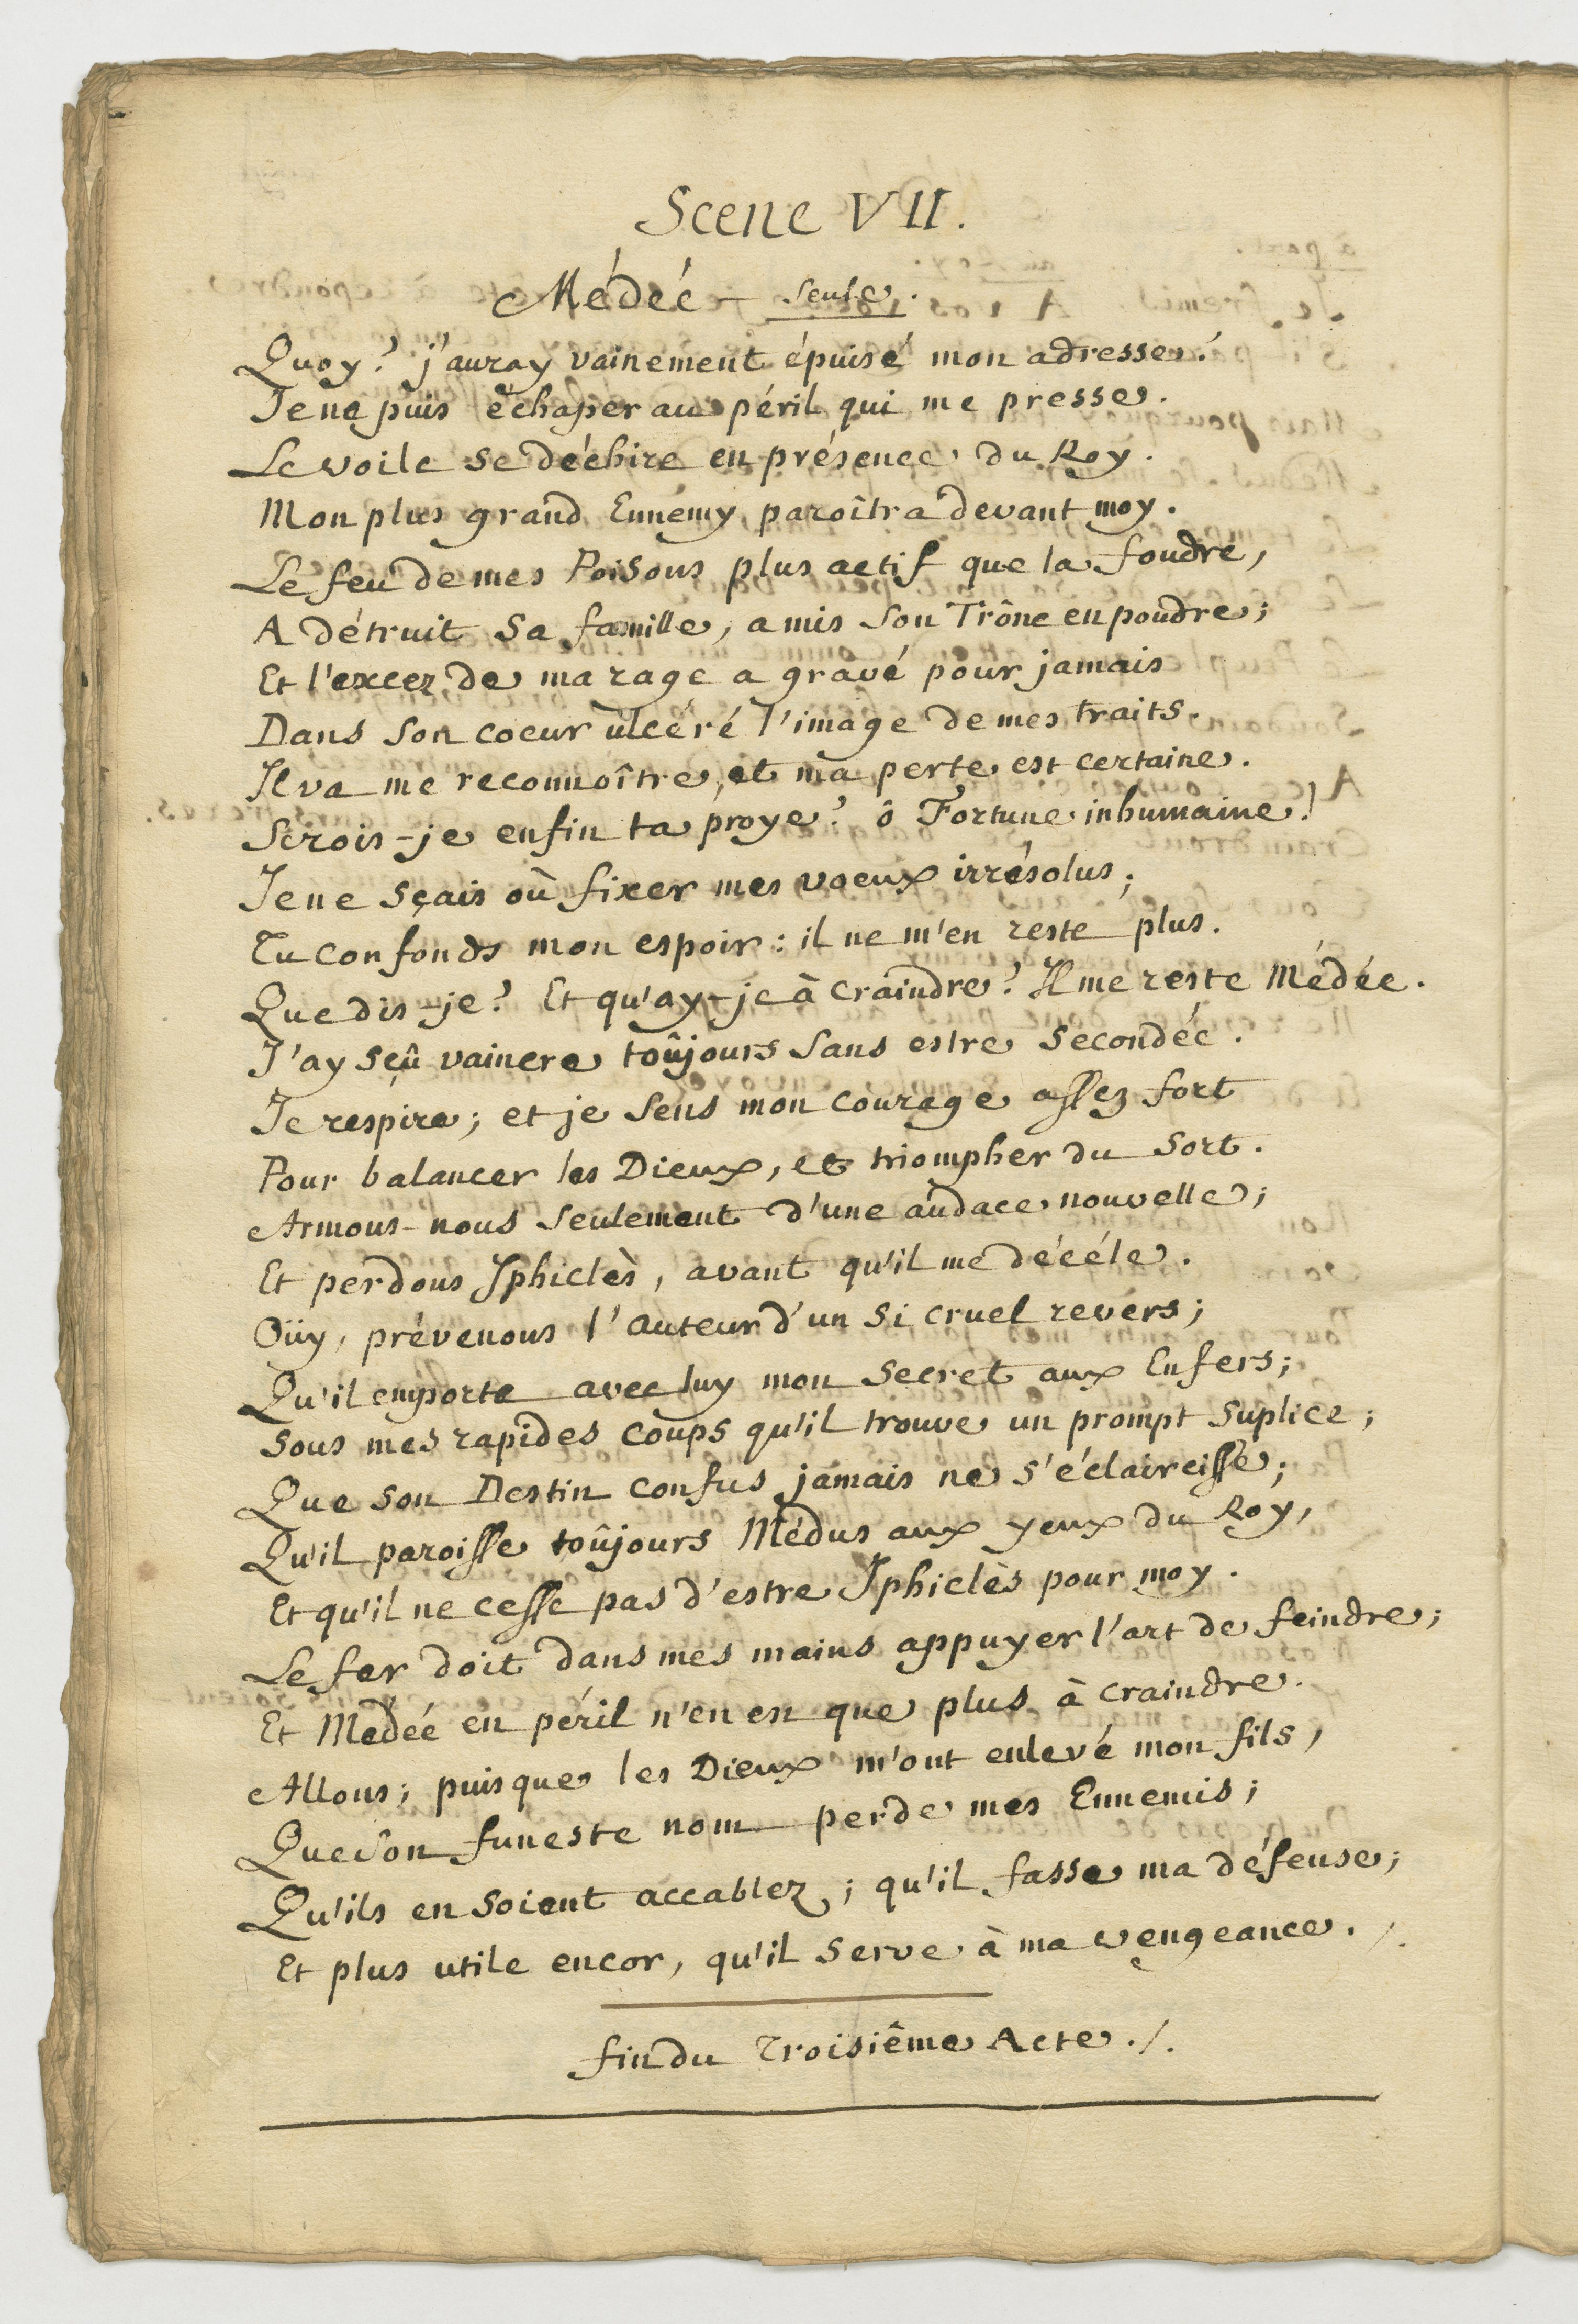 Scene VII.
Médée seule.
Quoy? j'auray vainement épuisé mon adresse!
Je ne puis échaper au péril qui me presse.
Le voile se déchire en présence du Roy.
Mon plus grand Ennemy paroîtra devant moy.
Le feu de mes Poisons plus actif que la foudre,
A détruit sa famille, a mis son Trône en poudre;
Et l'excez de ma rage a gravé pour jamais
Dans son coeur ulcéré l'image de mes traits.
Il va me reconnoître, et ma perte est certaine.
Serois-je enfin ta proye? ô Fortune inhumaine!
Je ne sçais où fixer mes voeux irrésolus;
Tu confonds mon espoir: il ne m'en reste plus.
Que dis-je? Et qu'ay-je à craindre? Il me reste Médée.
J'ay sçû vaincre toûjours sans estre secondée.
Je respire; et je sens mon courage assez fort
Pour balancer les Dieux, et triompher du sort.
Armons-nous seulement d'une audace nouvelle;
Et perdons Iphiclès, avant qu'il me décéle.
Oüy, prévenons l'auteur d'un si cruel revers;
Qu'il emporte avec luy mon secret aux Enfers;
Sous mes rapides coups qu'il trouve un prompt suplice;
Que son Destin confus jamais ne s'éclaircisse;
Qu'il paroisse toûjours Médus aux yeux du Roy,
Et qu'il ne cesse pas d'estre Iphiclès pour moy.
Le fer doit dans mes mains appuyer l'art de feindre;
Et Médée en péril n'en est que plus à craindre.
Allons; puisque les Dieux m'ont enlevé mon fils,
Que son funeste nom perde mes Ennemis;
Qu'ils en soient accablez; qu'il fasse ma défense;
Et plus utile encor, qu'il serve à ma vengeance. /.
fin du Troisiême Acte. /.